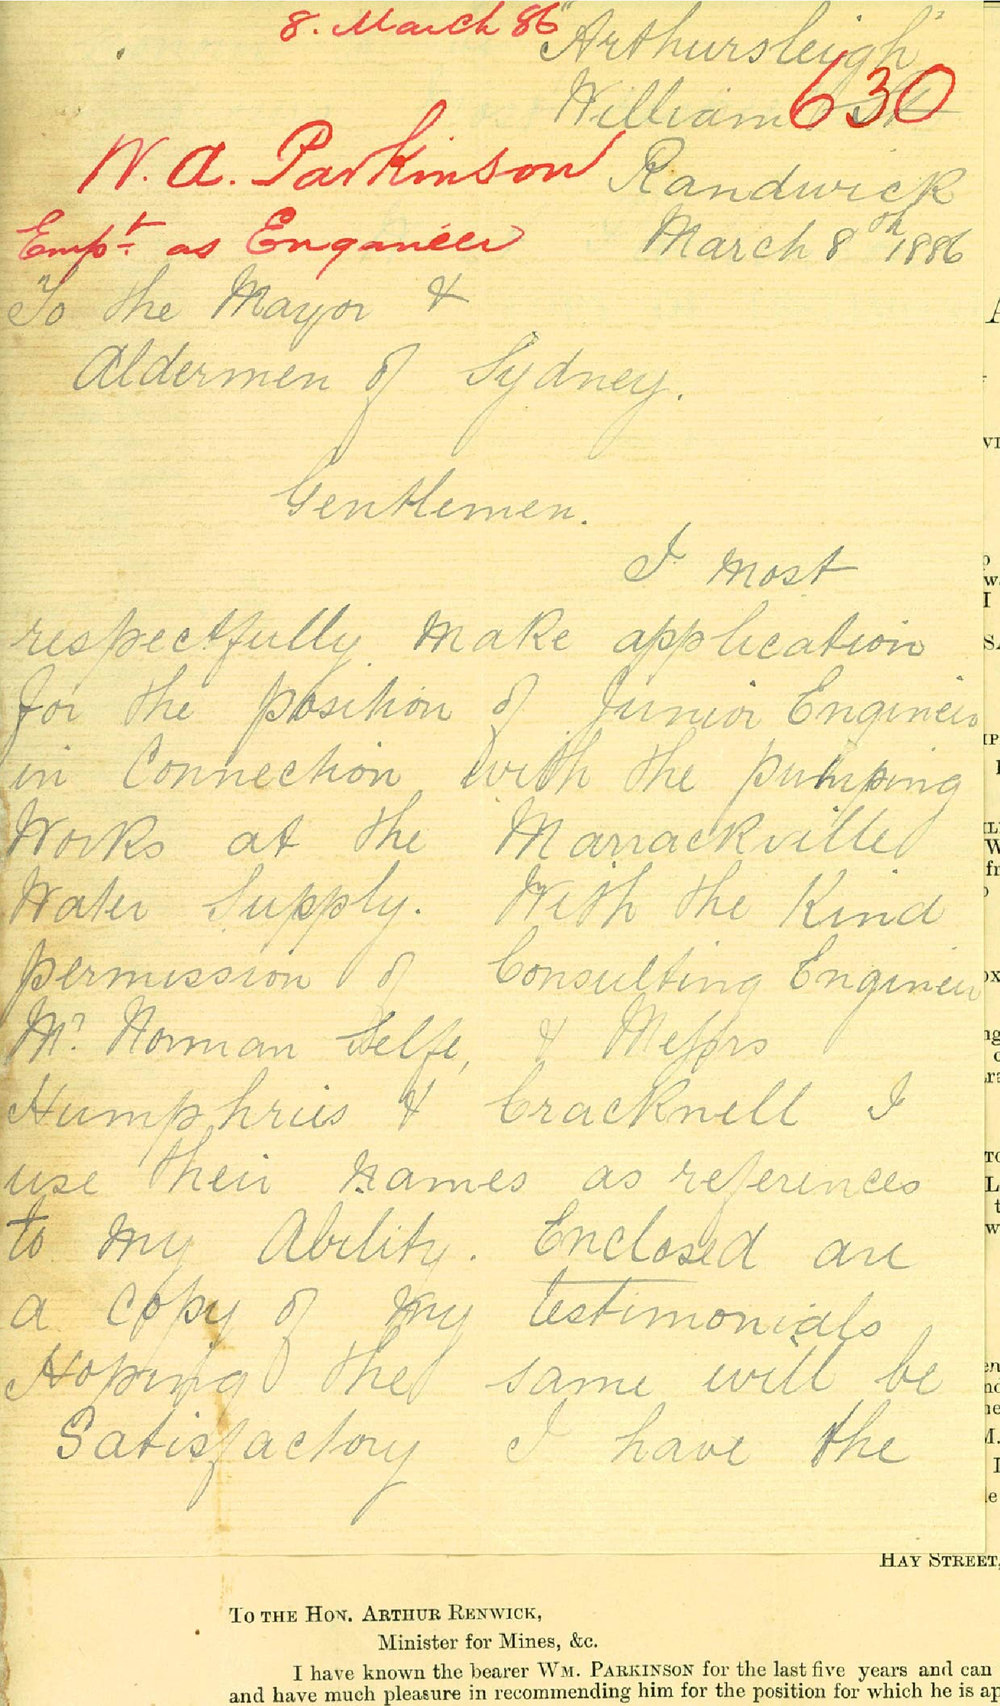 8. March 86
"Arthursleigh"
630
William St
W. A. Parkinson
Randwick
Empt. as Enganeer
March 8th 1886
To the Mayor &
Aldermen of Sydney.
Gentlemen.
I most
respectfully make application
for the position of Junior Engineer
in Connection with the pumping
Works at the Marrackville
Water Supply. With the Kind
permission of Consulting Engineer
Mr. Norman Selfe, & Messrs
Humphries & Cracknell I
use their names as references
to my Ability. Enclosed are
a Copy of my testimonials
Hoping the same will be
Satisfactory I have the
HAY STREET,
TO THE HON. ARTHUR RENWICK,
Minister for Mines, &c.
I have known the bearer WM. PARKINSON for the last five years and can
and have much pleasure in recommending him for the position for which he is ap